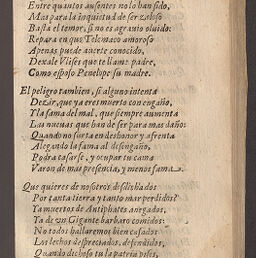 Entre quantos ausentes nolo han sido,
Mas para la inquietud de ser zeloso
Basta el temor, si no es agrauio oluido.
Repara en que Telemaco amoroso
Apenas puede auerte conocido,
Dexale Vlises que te llame padre,
Como esposo Penelope su madre.
El peligro tambien, si alguno intenta
Dezir, que ya eres muerto con engaño,
Y la fama del mal, que siempre aumenta
Las nueuas que han de ser para mas daño:
Quando no surta en deshonor y afrenta
Alegando la fama al desengaño,
Podra casarse, y ocupar tu cama
Varon de mas presencia, y menos fama.
Que quieres de nosotros desdichados
Por tanta tierra y tanto mar perdidos?
Ya muertos de Antiphates anegados,
Ya de vn Gigante barbaro comidos:
No todos hallaremos bien casados
Los lechos despreciados, defendidos,
Quando dichoso tu la patria pises,